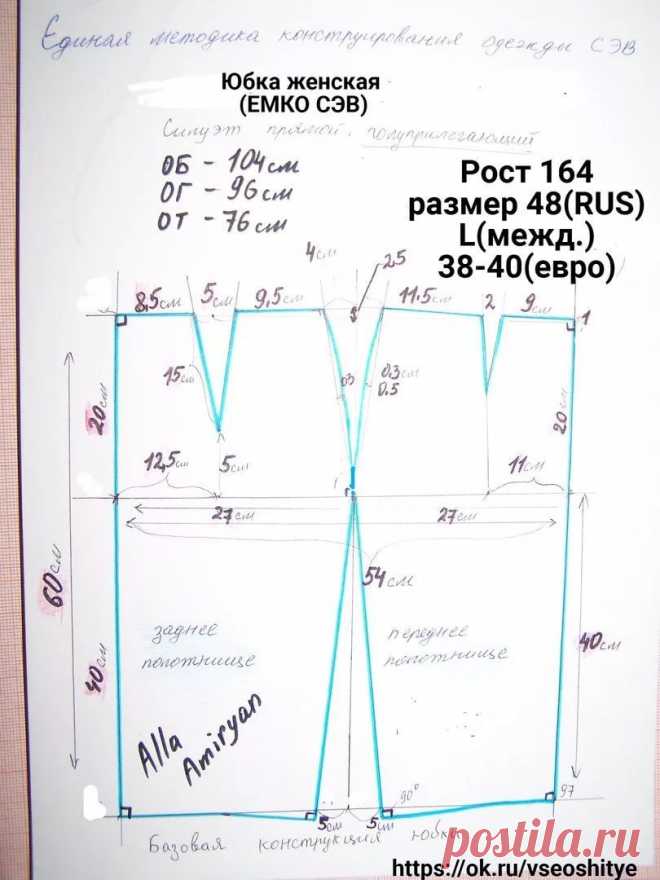 Единая методика конструирования одежды СЭВ
Юбка женская
(ЕМКО СЭВ)
Силуэт прямой, полуприлегающий
ОБ - 104см
ОГ - 96см
ОТ - 76см
Рост 164
размер 48(RUS)
L(межд.)
38-40(евро)
4см
2.5
8,5см
5см
9,5см
11.5см
2
9см
1
15см
0.3см
0.5
20см
20см
12,5см
5см
11см
27см
27см
54см
60см
заднее
полотнище
переднее
полотнище
40см
40см
Alla
Amiryan
90°
97
5см
5см
Базовая конструкция юбки
postila.ru
https://ok.ru/vseoshitye